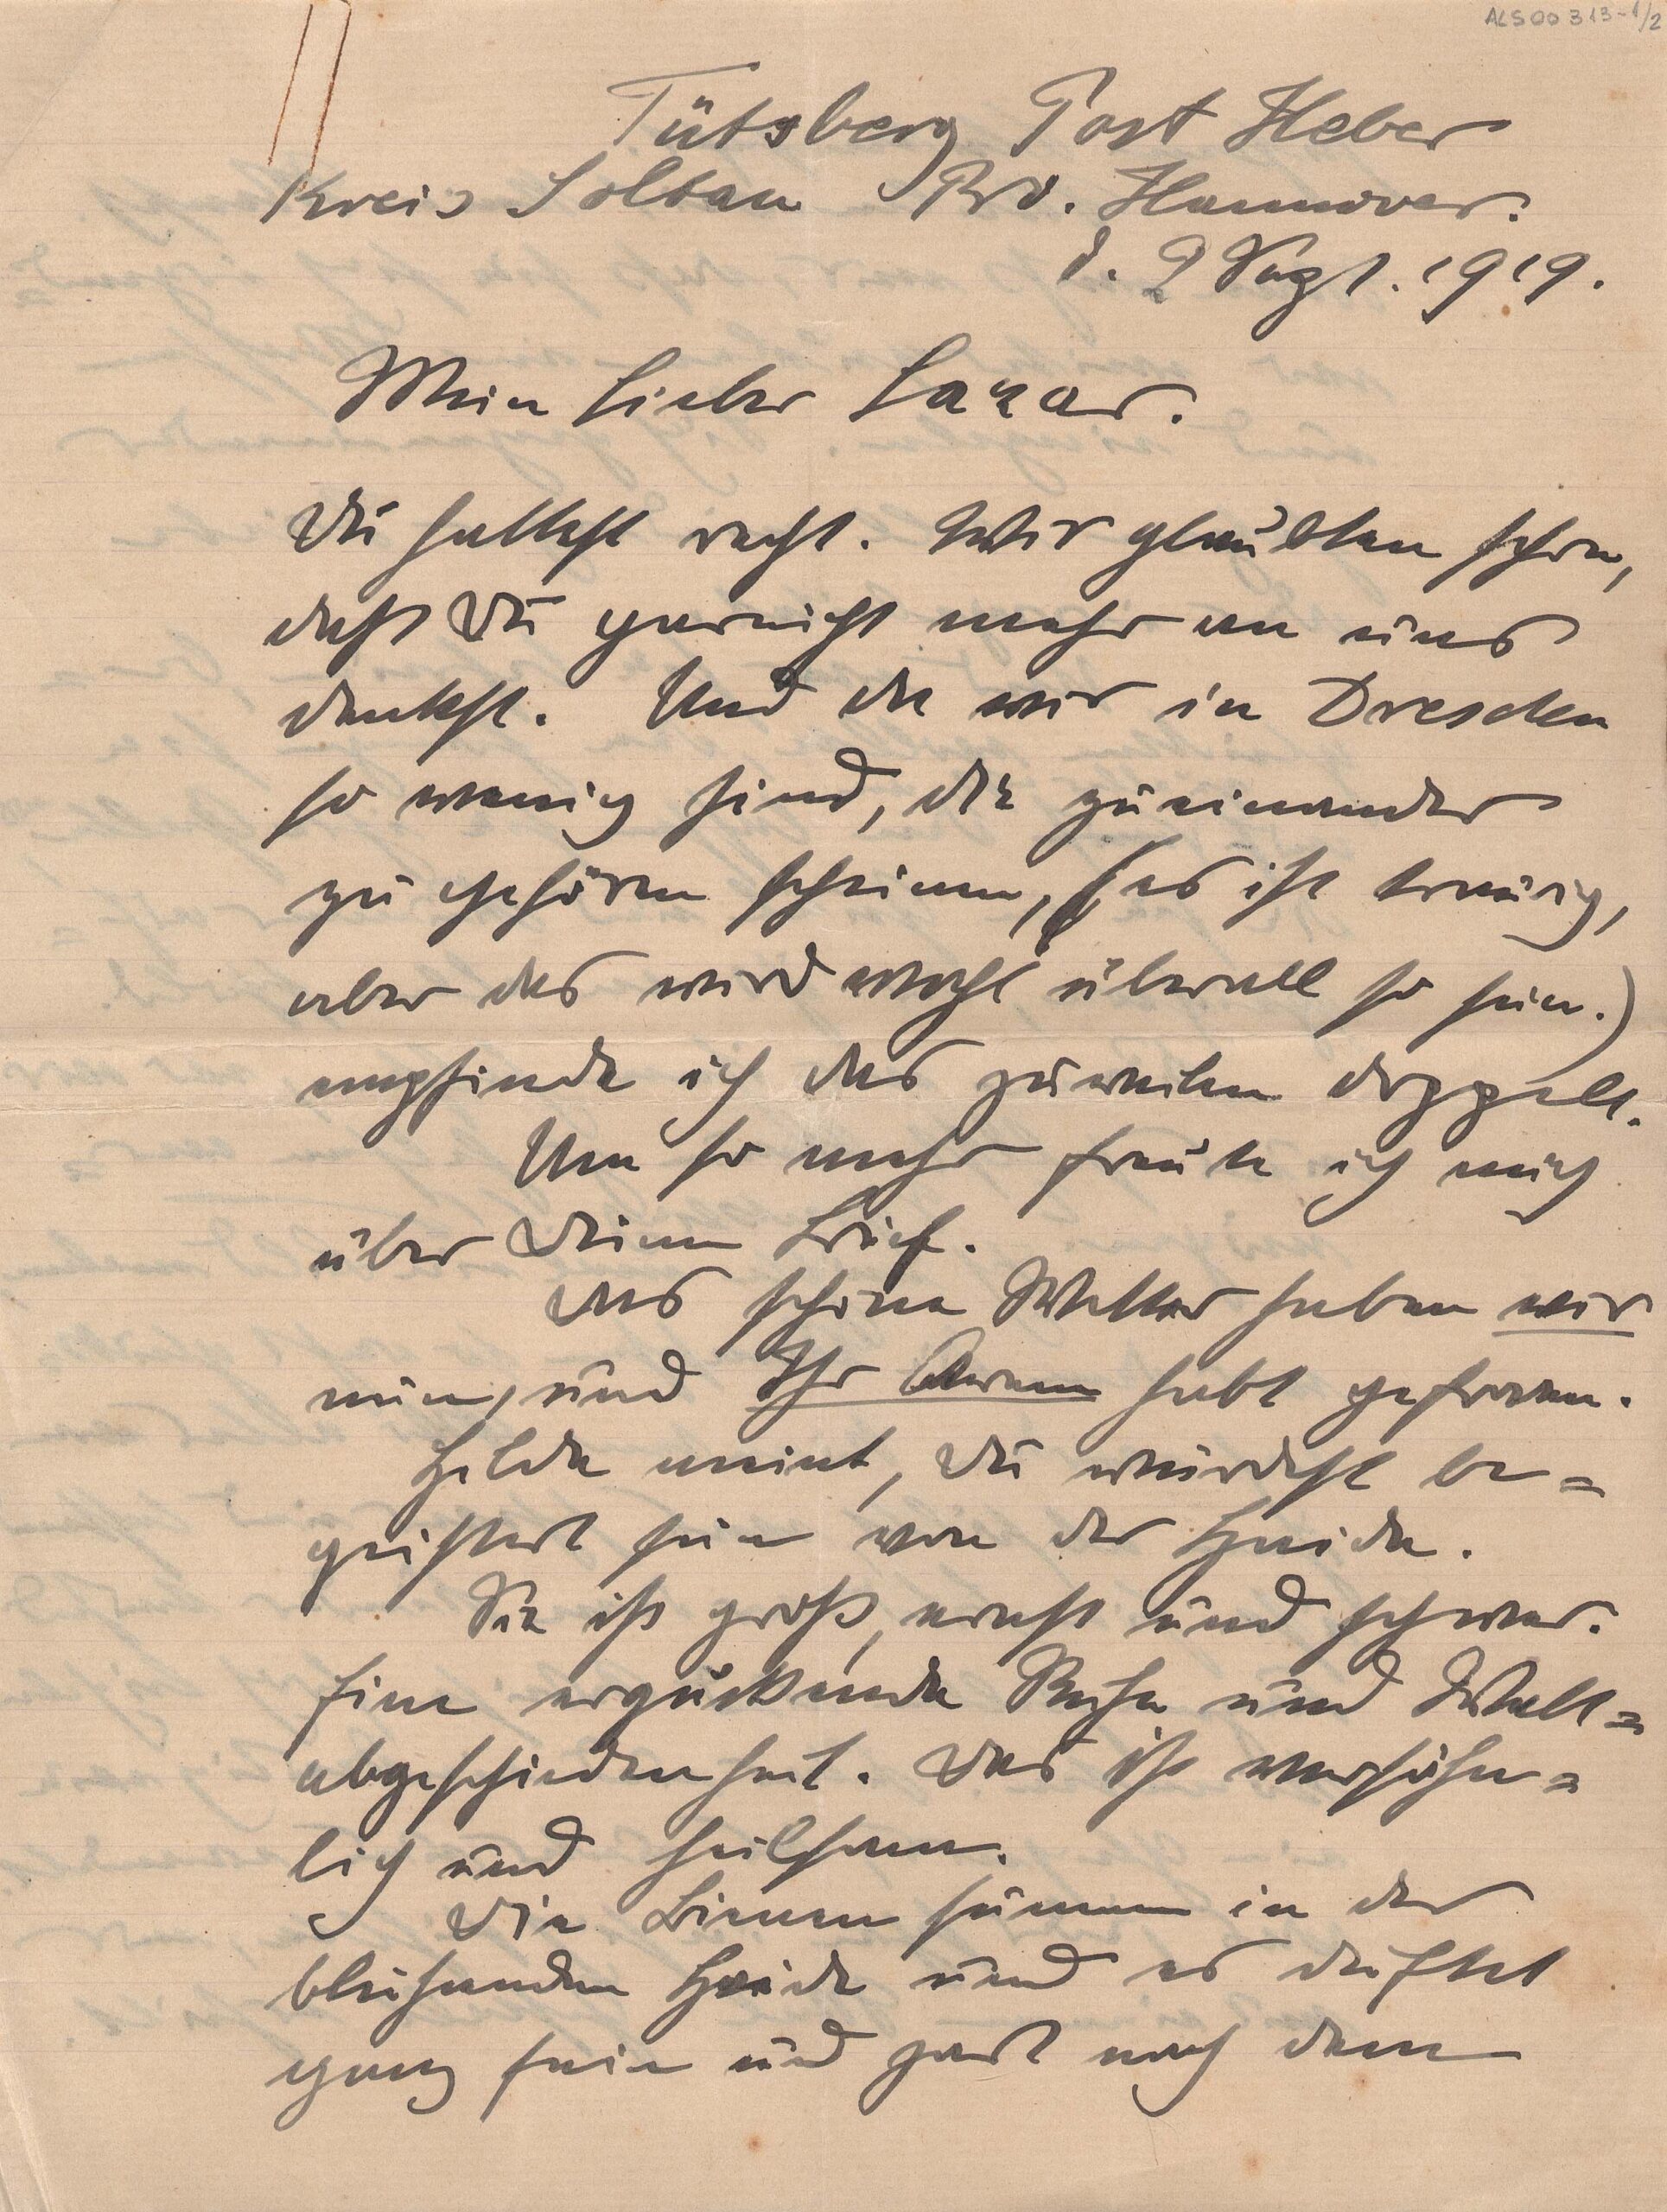 ALS 00 313-1/2
Tütsberg Post Heber
Kreis Soltau Prov. Hannover.
d. 2 Sept. 1919.
Mein lieber Lazar.
Du hattest recht. Wir glaubten schon,
daß Du garnicht mehr an uns
denkst. Und da wir in Dresden
so wenig sind, die zueinander
zu gehören scheinen, (es ist traurig,
aber das wird wohl überall so sein.)
empfinde ich das zuweilen doppelt.
Um so mehr freute ich mich
über Deinen Brief.
Das schöne Wetter haben wir
nun, und Ihr Armen habt gefroren.
Hilde meint, Du würdest be=
geistert sein von der Heide.
Sie ist groß, ernst und schwer.
Eine erquickende Ruhe und Welt=
abgeschiedenheit. Das ist versöhn=
lich und heilsam.
Die Bienen summen in der
blühenden Heide und es duftet
ganz fein und zart nach dem